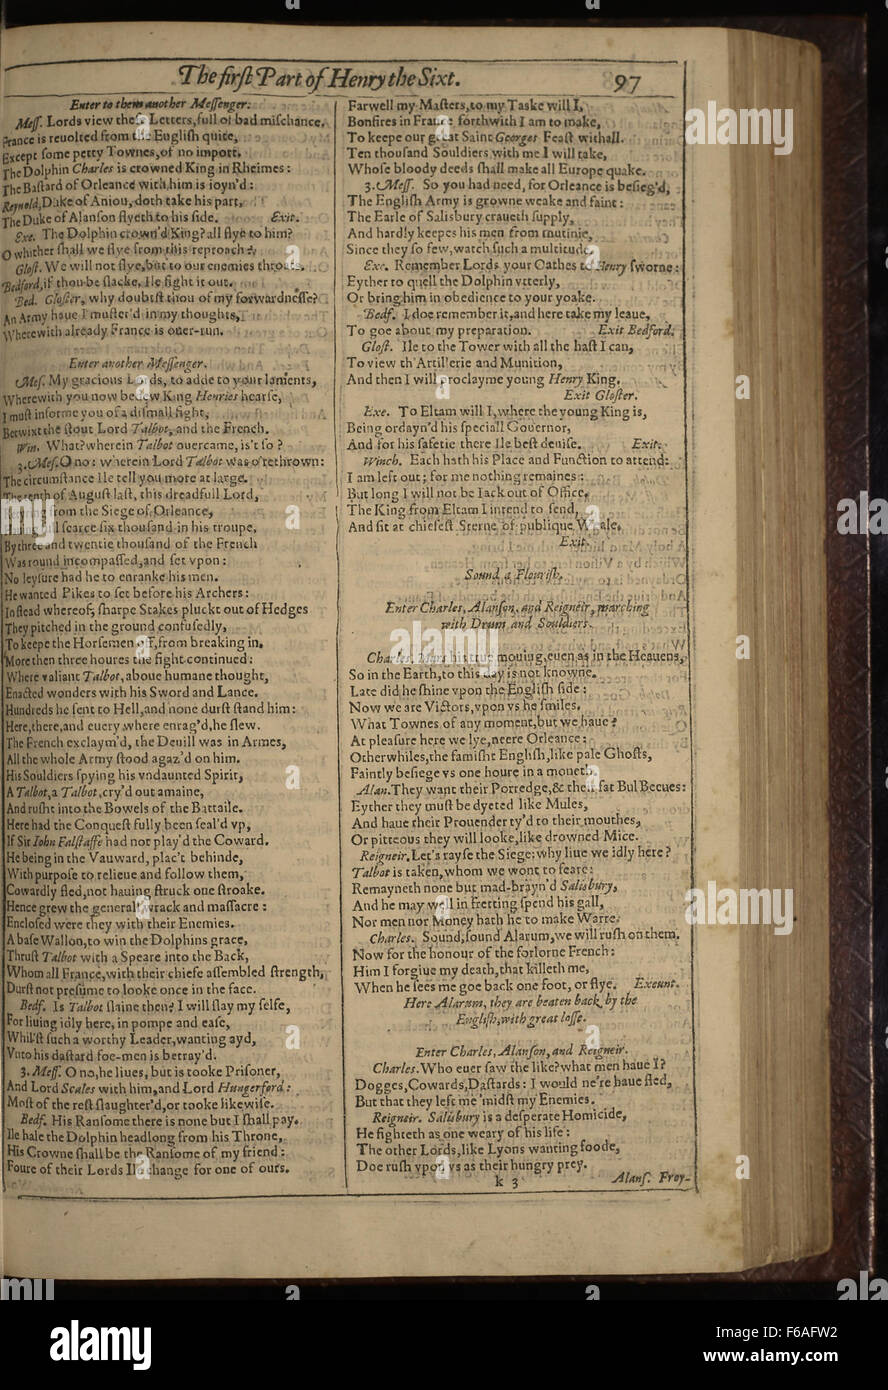 The first Part of Henry the Sixt. 97
Enter to them another Messenger.
Mess. Lords view these Letters, full of bad mischance.
France is reuolted from the English quite,
Except some petty Townes, of no import.
The Dolphin Charles is crowned King in Rheimes:
The Bastard of Orleance with him is ioyn'd:
Reynold, Duke of Aniou, doth take his part,
The Duke of Alanson flyeth to his side. Exit.
Exe. The Dolphin crown'd King? all flye to him?
O whither shall we flye from this reproach?
Glost. We will not flye, but to our enemies throats.
Bedford, if thou be slacke, Ile fight it out.
Bed. Gloster, why doubtst thou of my forwardnesse?
An Army haue I muster'd in my thoughts,
Wherewith already France is ouer-run.
Enter another Messenger.
Mes. My gracious Lords, to adde to your laments,
Wherewith you now bedew King Henries hearse,
I must informe you of a dismall fight,
Betwixt the stout Lord Talbot, and the French.
Win. What? wherein Talbot ouercame, is't so?
3. Mes. O no: wherein Lord Talbot was o'rethrown:
The circumstance Ile tell you more at large.
The tenth of August last, this dreadfull Lord,
Retyring from the Siege of Orleance,
Hauing full scarce six thousand in his troupe,
By three and twentie thousand of the French
Was round incompassed, and set vpon:
No leysure had he to enranke his men.
He wanted Pikes to set before his Archers:
Instead whereof, sharpe Stakes pluckt out of Hedges
They pitched in the ground confusedly,
To keepe the Horsemen off, from breaking in.
More then three houres the fight continued:
Where valiant Talbot, aboue humane thought,
Enacted wonders with his Sword and Lance.
Hundreds he sent to Hell, and none durst stand him:
Here, there, and euery where enrag'd, he slew.
The French exclaym'd, the Deuill was in Armes,
All the whole Army stood agaz'd on him.
His Souldiers spying his vndaunted Spirit,
A Talbot, a Talbot, cry'd out amaine,
And rusht into the Bowels of the Battaile.
Here had the Conquest fully been seal'd vp,
If Sir Iohn Falstaffe had not play'd the Coward.
He being in the Vauward, plac't behinde,
With purpose to relieue and follow them,
Cowardly fled, not hauing struck one stroake.
Hence grew the generall wrack and massacre:
Enclosed were they with their Enemies.
A base Wallon, to win the Dolphins grace,
Thrust Talbot with a Speare into the Back,
Whom all France, with their chiefe assembled strength,
Durst not presume to looke once in the face.
Bedf. Is Talbot slaine then? I will slay my selfe,
For liuing idly here, in pompe and ease,
Whil'st such a worthy Leader, wanting ayd,
Vnto his dastard foe-men is betray'd.
3. Mess. O no, he liues, but is tooke Prisoner,
And Lord Scales with him, and Lord Hungerford:
Most of the rest slaughter'd, or tooke likewise.
Bedf. His Ransome there is none but I shall pay.
Ile hale the Dolphin headlong from his Throne,
His Crowne shall be the Ransome of my friend:
Foure of their Lords Ile change for one of ours.
Farwell my Masters, to my Taske will I,
Bonfires in France forthwith I am to make,
To keepe our great Saint Georges Feast withall.
Ten thousand Souldiers with me I will take,
Whose bloody deeds shall make all Europe quake.
3. Mess. So you had need, for Orleance is besieg'd,
The English Army is growne weake and faint:
The Earle of Salisbury craueth supply,
And hardly keepes his men from mutinie,
Since they so few, watch such a multitude.
Exe. Remember Lords your Oathes to Henry sworne:
Eyther to quell the Dolphin vtterly,
Or bring him in obedience to your yoake.
Bedf. I doe remember it, and here take my leaue,
To goe about my preparation. Exit Bedford.
Glost. Ile to the Tower with all the hast I can,
To view th'Artillerie and Munition,
And then I will proclayme young Henry King.
Exit Gloster.
Exe. To Eltam will I, where the young King is,
Being ordayn'd his speciall Gouernor,
And for his safetie there Ile best deuise. Exit.
Winch. Each hath his Place and Function to attend:
I am left out; for me nothing remaines:
But long I will not be Iack out of Office,
The King from Eltam I intend to send,
And sit at chiefest Sterne of publique Weale.
Exit.
Sound a Flourish.
Enter Charles, Alanson, and Reigneir, marching
with Drum and Souldiers.
Charles. Mars his true mouing, euen as in the Heauens,
So in the Earth, to this day is not knowne.
Late did he shine vpon the English side:
Now we are Victors, vpon vs he smiles.
What Townes of any moment, but we haue?
At pleasure here we lye, neere Orleance:
Otherwhiles, the famisht English, like pale Ghosts,
Faintly besiege vs one houre in a moneth.
Alan. They want their Porredge, & their fat Bul Beeues:
Eyther they must be dyeted like Mules,
And haue their Prouender ty'd to their mouthes,
Or pitteous they will looke, like drowned Mice.
Reigneir. Let's rayse the Siege: why liue we idly here?
Talbot is taken, whom we wont to feare:
Remayneth none but mad-brayn'd Salisbury,
And he may well in fretting spend his gall,
Nor men nor Money hath he to make Warre.
Charles. Sound, sound Alarum, we will rush on them.
Now for the honour of the forlorne French:
Him I forgiue my death, that killeth me,
When he sees me goe back one foot, or flye. Exeunt.
Here Alarum, they are beaten back by the
English, with great losse.
Enter Charles, Alanson, and Reigneir.
Charles. Who euer saw the like? what men haue I?
Dogges, Cowards, Dastards: I would ne're haue fled,
But that they left me 'midst my Enemies.
Reigneir. Salisbury is a desperate Homicide,
He fighteth as one weary of his life:
The other Lords, like Lyons wanting foode,
Doe rush vpon vs as their hungry prey.
k 3 Alans. Froy-
alamy
alamy stock photo
F6AFW2
www.alamy.com